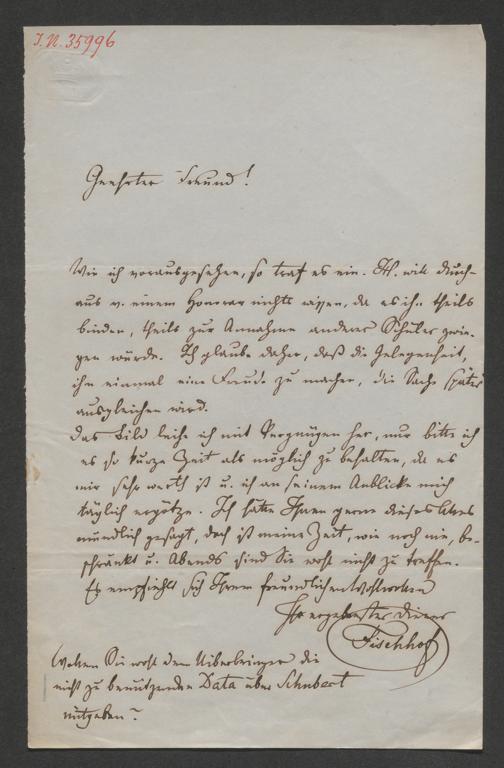 I. N. 35996
Geehrter Freund!
Wie ich vorausgesehen, so traf es ein. H. will durch-
aus v. einem Honorar nichts wissen, da es ihn theils
binden, theils zur Annahme anderer Schüler zwin-
gen würde. Ich glaube daher, daß die Gelegenheit,
ihm einmal eine Freude zu machen, die Sache später
ausgleichen wird.
Das Bild leihe ich mit Vergnügen her, nur bitte ich
es so kurze Zeit als möglich zu behalten, da es
mir sehr werth ist u. ich an seinem Anblicke mich
täglich ergötze. Ich hätte Ihnen gerne dieses Alles
mündlich gesagt, doch ist meine Zeit, wie noch nie, be-
schränkt u. Abends sind Sie wohl nicht zu treffen.
Es empfiehlt sich Ihrem freundlichen Wohlwollen
Ihr ergebenster Diener
Fischhof
Wollen Sie wohl dem Überbringer die
nicht zu benutzenden Data über Schubert
mitgeben?